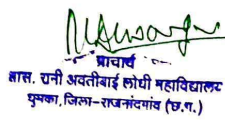 प्राचार्य
शास. रानी अवंतीबाई लोधी महाविद्यालय
घुमका, जिला-राजनांदगांव (छ.ग.)